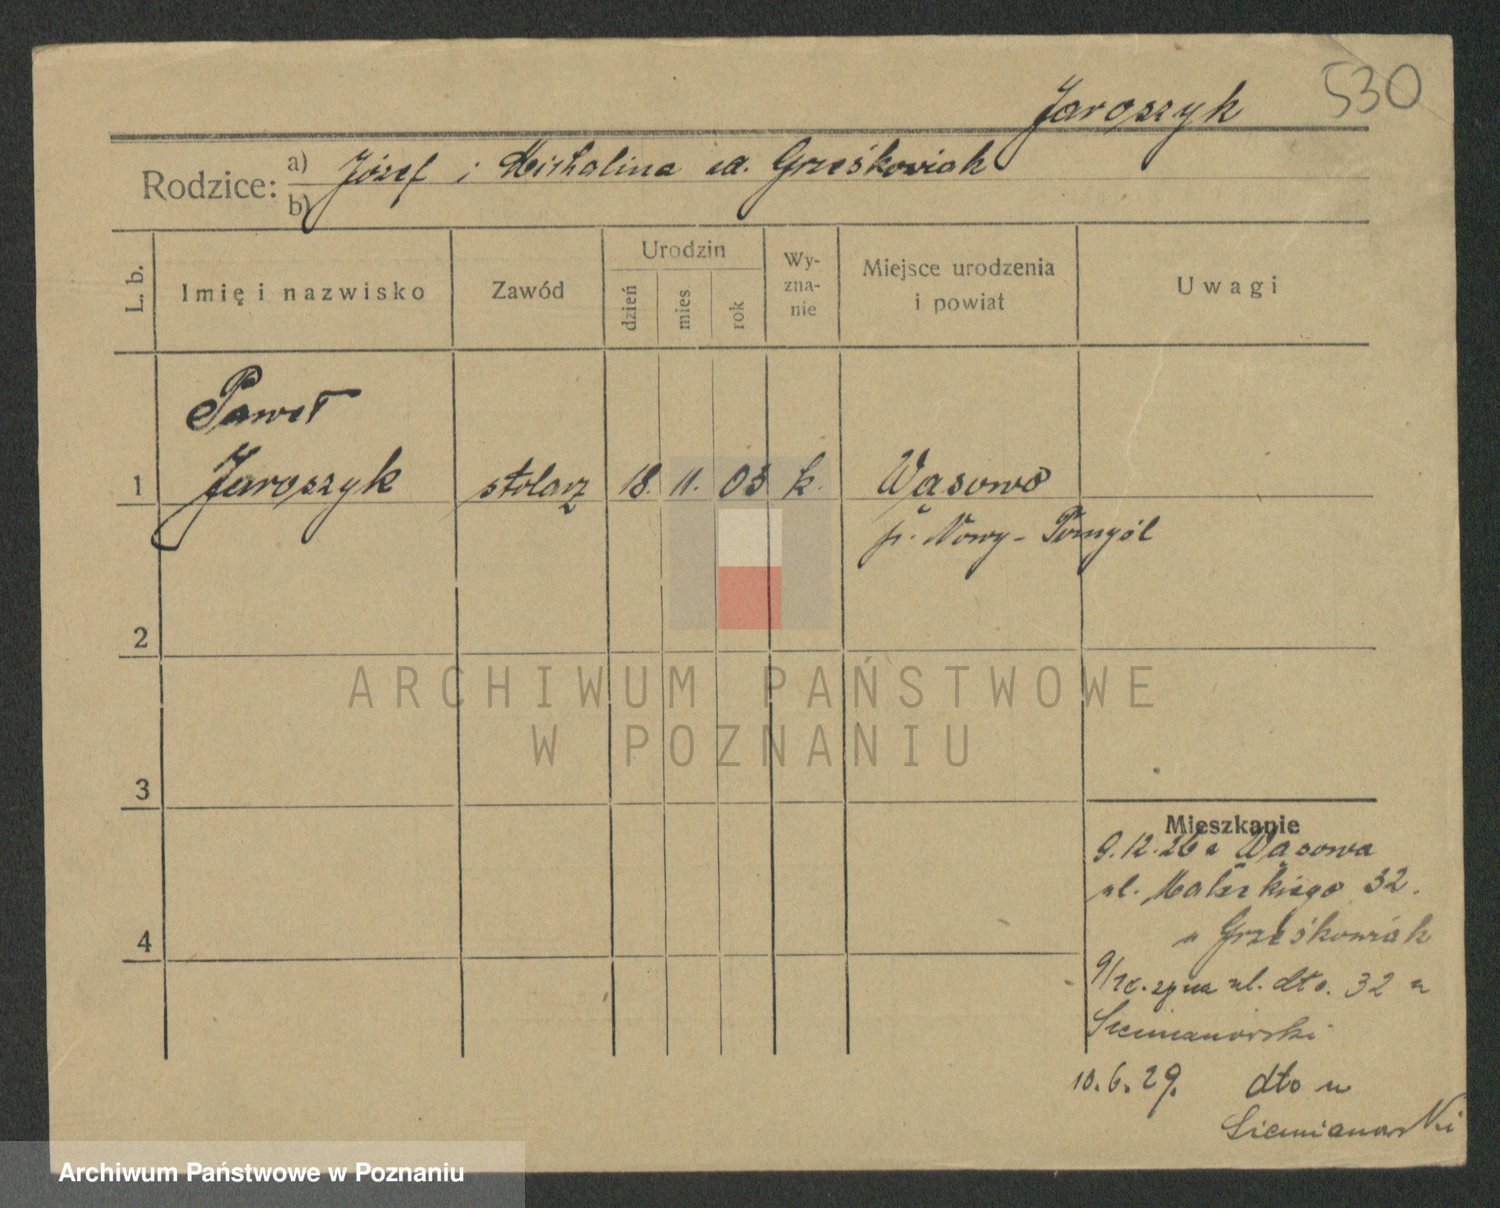 530
Jaroszyk
Rodzice: a) Józef i Michalina Grześkowiak
b)
L. b.
Imię i nazwisko
Zawód
Urodzin
dzień
mies
rok
Wy-
zna-
nie
Miejsce urodzenia
i powiat
Uwagi
Paweł
1 Jaroszyk stolarz 18. 11. 03 k. Wąsowo
p. Nowy-Tomyśl
2
ARCHIWUM PAŃSTWOWE
W POZNANIU
3
Mieszkanie
9.12.26 z Wąsowa
ul. Małeckiego 32.
u Grześkowiak
ul. dto. 32 u
Siemianowski
4
10.6.29. dto u
Siemianowski
Archiwum Państwowe w Poznaniu